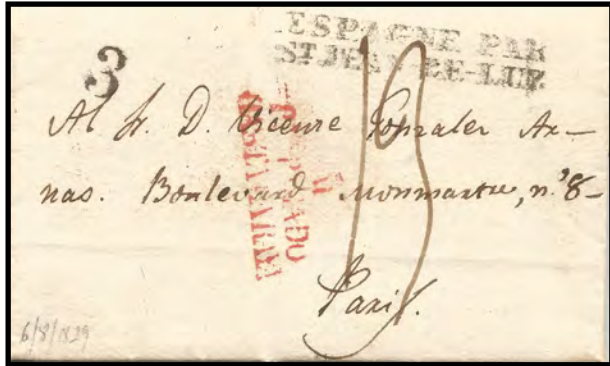 ESPAGNE PAR
ST JEAN-DE-LUZ
3
13
Al Sr. D. Vicente Gonzalez Ar-
nas. Boulevard Monmartre, n.º 8-
Paris.
6/8/1829